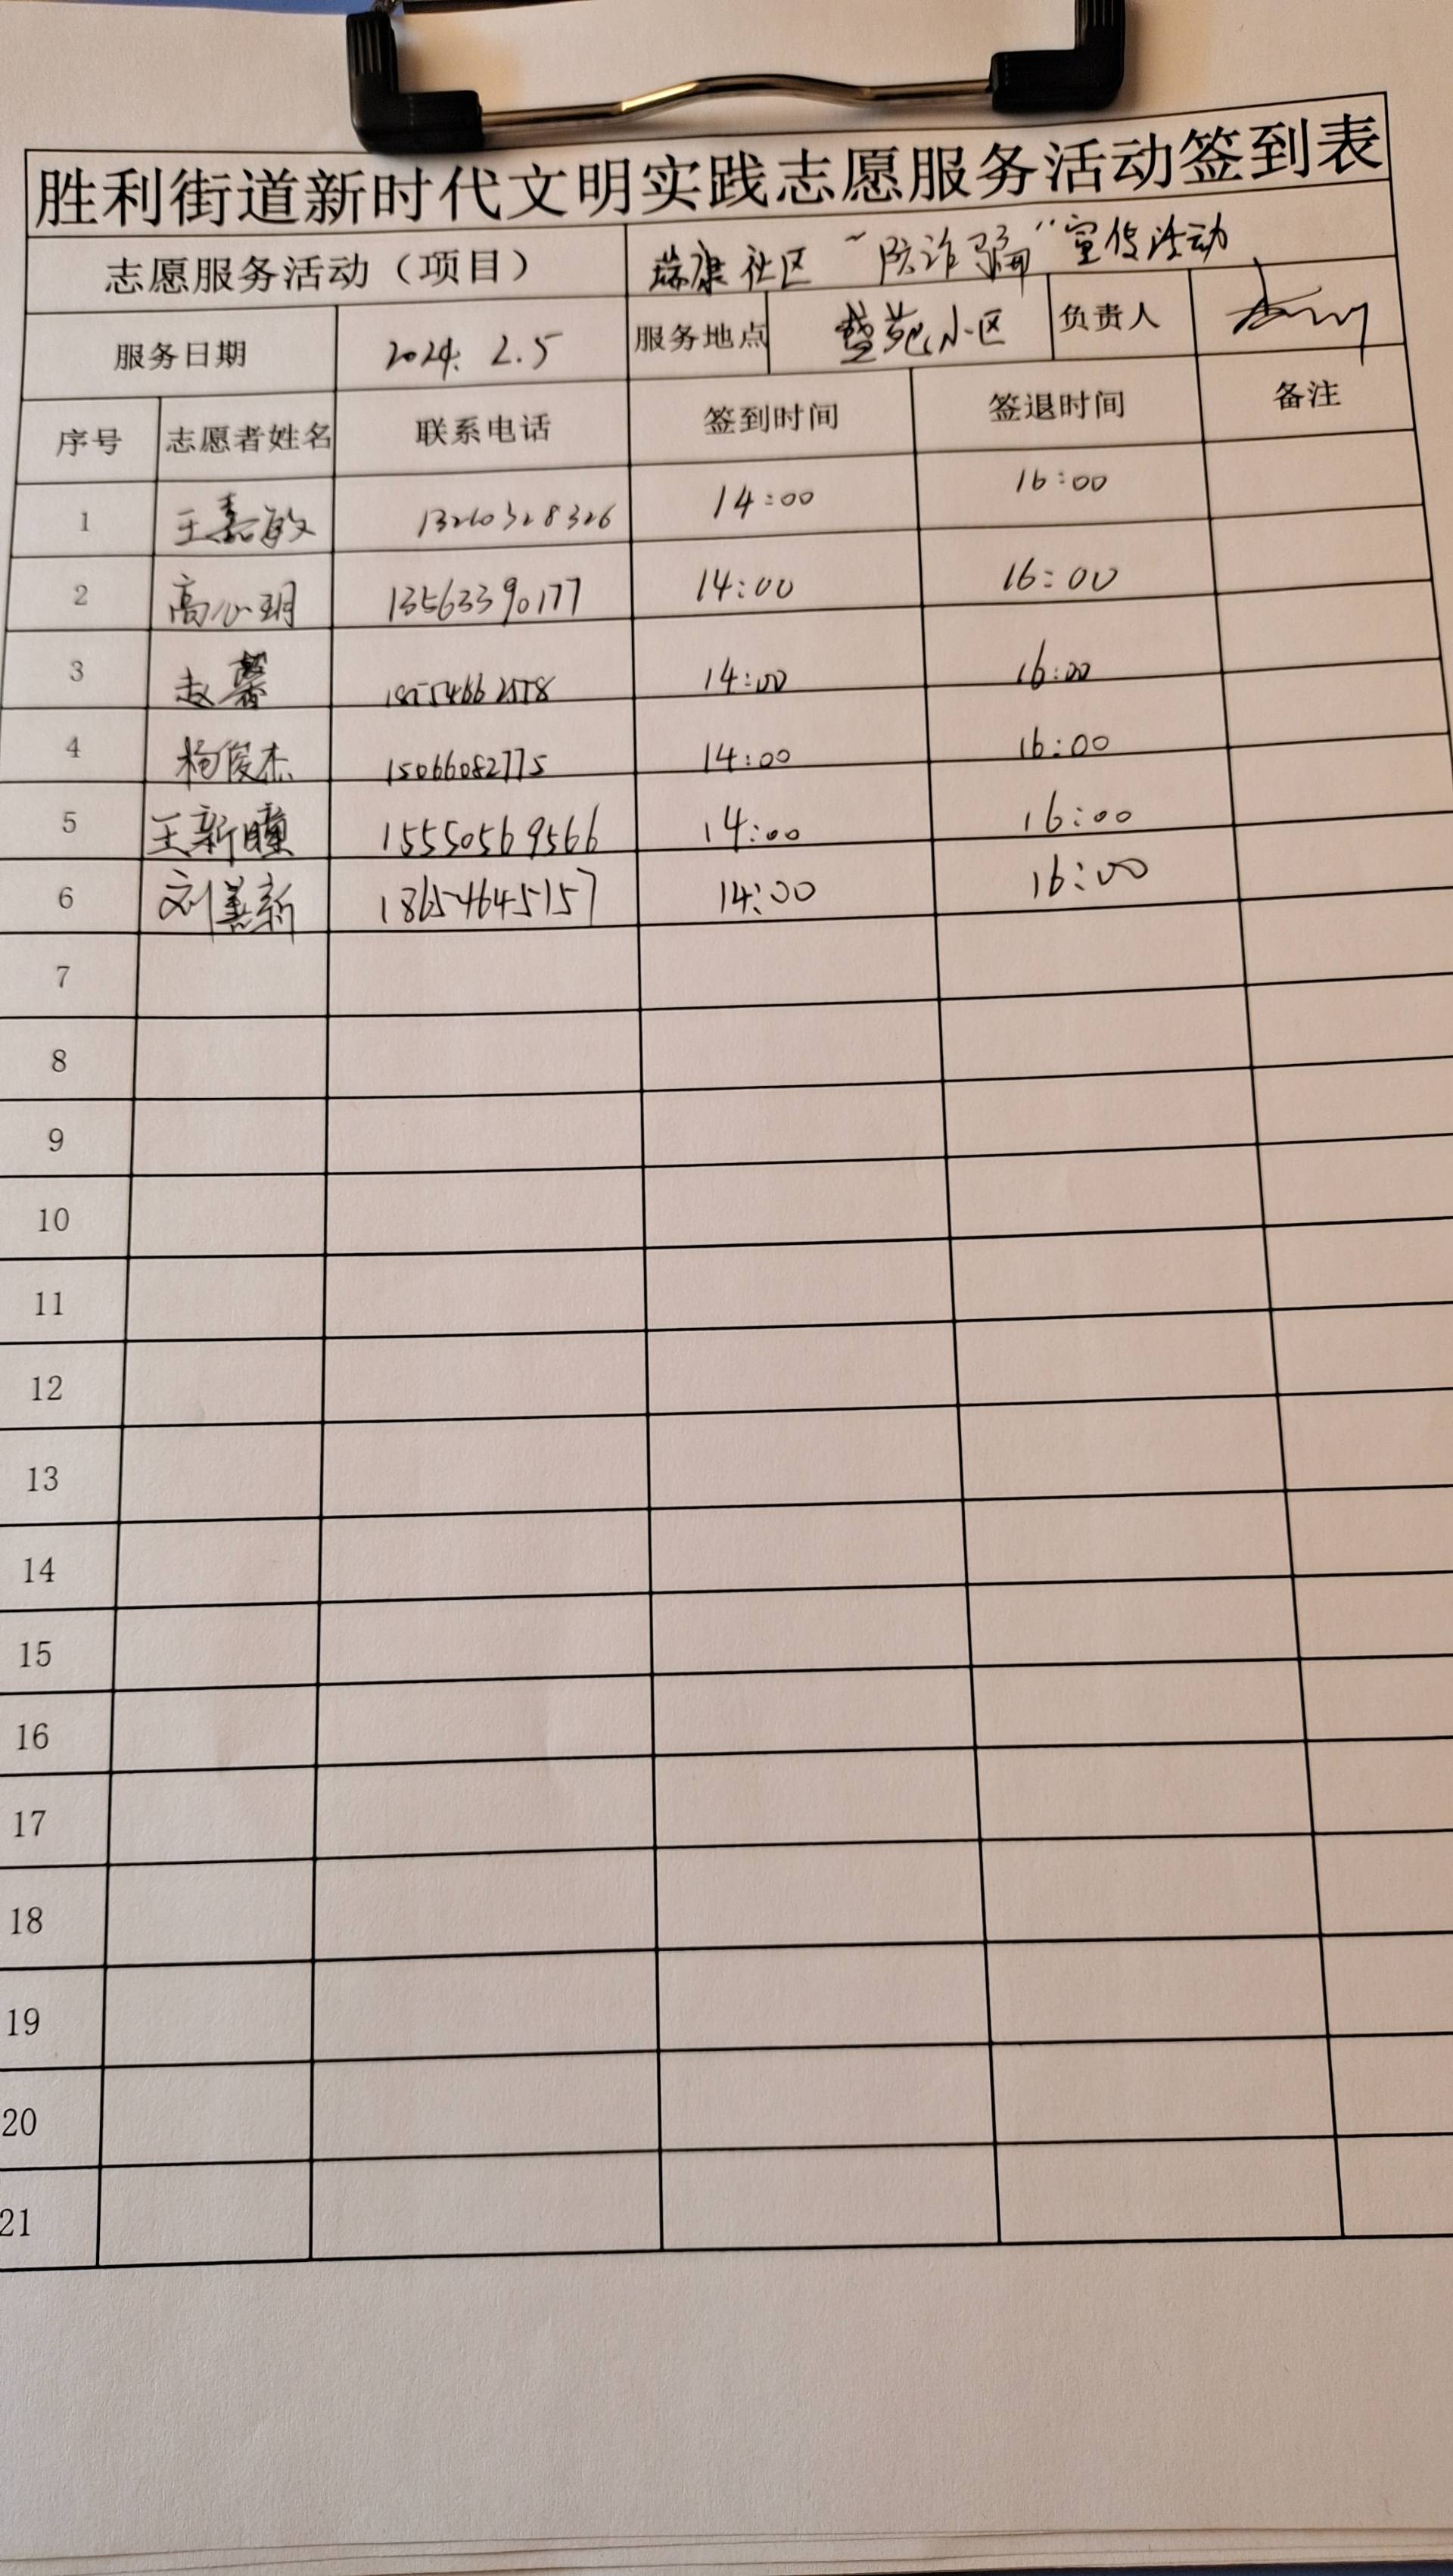 胜利街道新时代文明实践志愿服务活动签到表
志愿服务活动（项目） 社区 “防诈骗”宣传活动
服务日期 2024. 2.5 服务地点 小区 负责人
序号 志愿者姓名 联系电话 签到时间 签退时间 备注
1 王嘉敏 13210328326 14:00 16:00
2 高心玥 13563390177 14:00 16:00
3 赵馨 14:00 16:00
4 杨俊杰 15066082775 14:00 16:00
5 王新瞳 15550569566 14:00 16:00
6 刘善新 18654645157 14:00 16:00
7
8
9
10
11
12
13
14
15
16
17
18
19
20
21